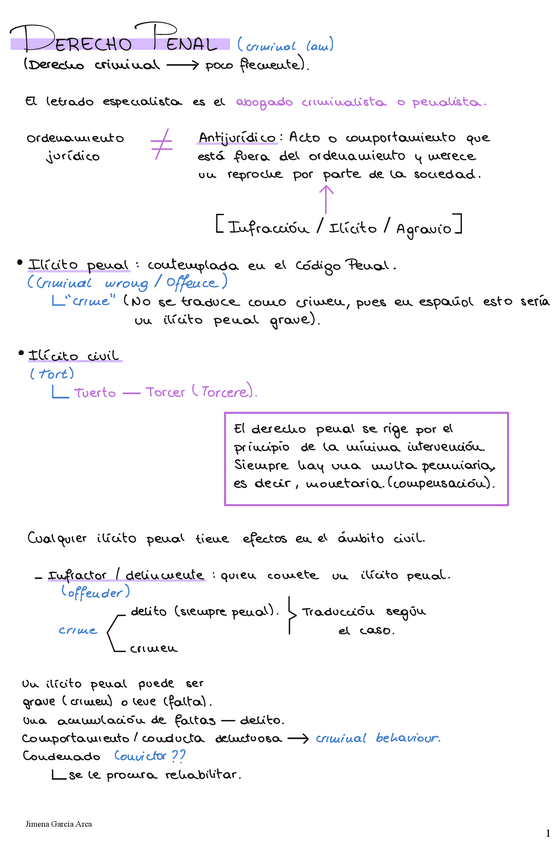 DERECHO PENAL (criminal law)
(Derecho criminal → poco frecuente).
El letrado especialista es el abogado criminalista o penalista.
ordenamiento jurídico ≠ Antijurídico: Acto o comportamiento que
está fuera del ordenamiento y merece
un reproche por parte de la sociedad.
[Infracción / Ilícito / Agravio]
• Ilícito penal: contemplada en el Código Penal.
(Criminal wrong / Offence)
"crime" (No se traduce como crimen, pues en español esto sería
un ilícito penal grave).
• Ilícito civil
(Tort)
Tuerto — Torcer (Torcere).
El derecho penal se rige por el
principio de la mínima intervención.
Siempre hay una multa pecuniaria,
es decir, monetaria. (compensación).
Cualquier ilícito penal tiene efectos en el ámbito civil.
– Infractor / delincuente: quien comete un ilícito penal.
(offender)
crime
delito (siempre penal).
crimen
Traducción según
el caso.
Un ilícito penal puede ser
grave (crimen) o leve (falta).
Una acumulación de faltas — delito.
Comportamiento / conducta delictuosa → criminal behaviour.
Condenado Convictor??
se le procura rehabilitar.
Jimena García Arca
1